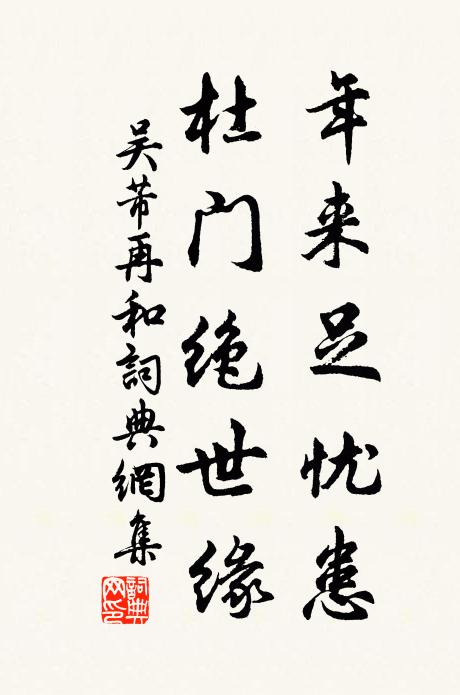 年来足忧患
杜门绝世缘
吴芾再和詞典網集
詞典網印